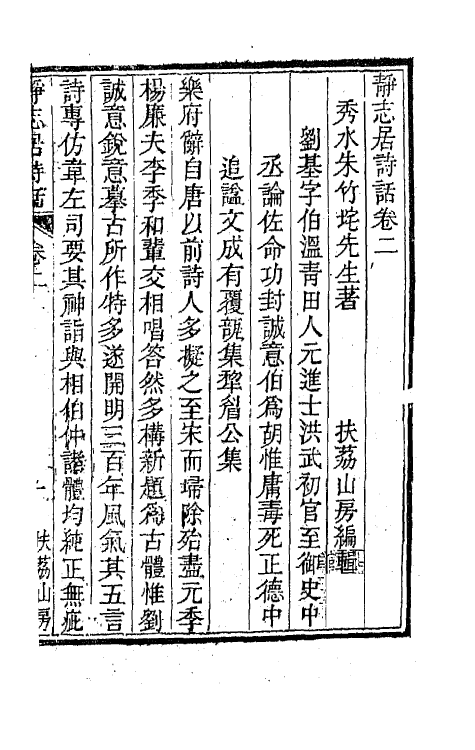 靜志居詩話卷二
秀水朱竹垞先生著　扶荔山房編輯
劉基字伯溫靑田人元進士洪武初官至御史中
丞論佐命功封誠意伯爲胡惟庸毒死正德中
追謚文成有覆瓿集犂眉公集
樂府辭自唐以前詩人多擬之至宋而埽除殆盡元季
楊廉夫李季和輩交相唱荅然多搆新題爲古體惟劉
誠意銳意摹古所作特多遂開明三百年風氣其五言
詩專仿韋左司要其神詣與相伯仲諸體均純正無疵
靜志居詩話　卷二　一　扶荔山房